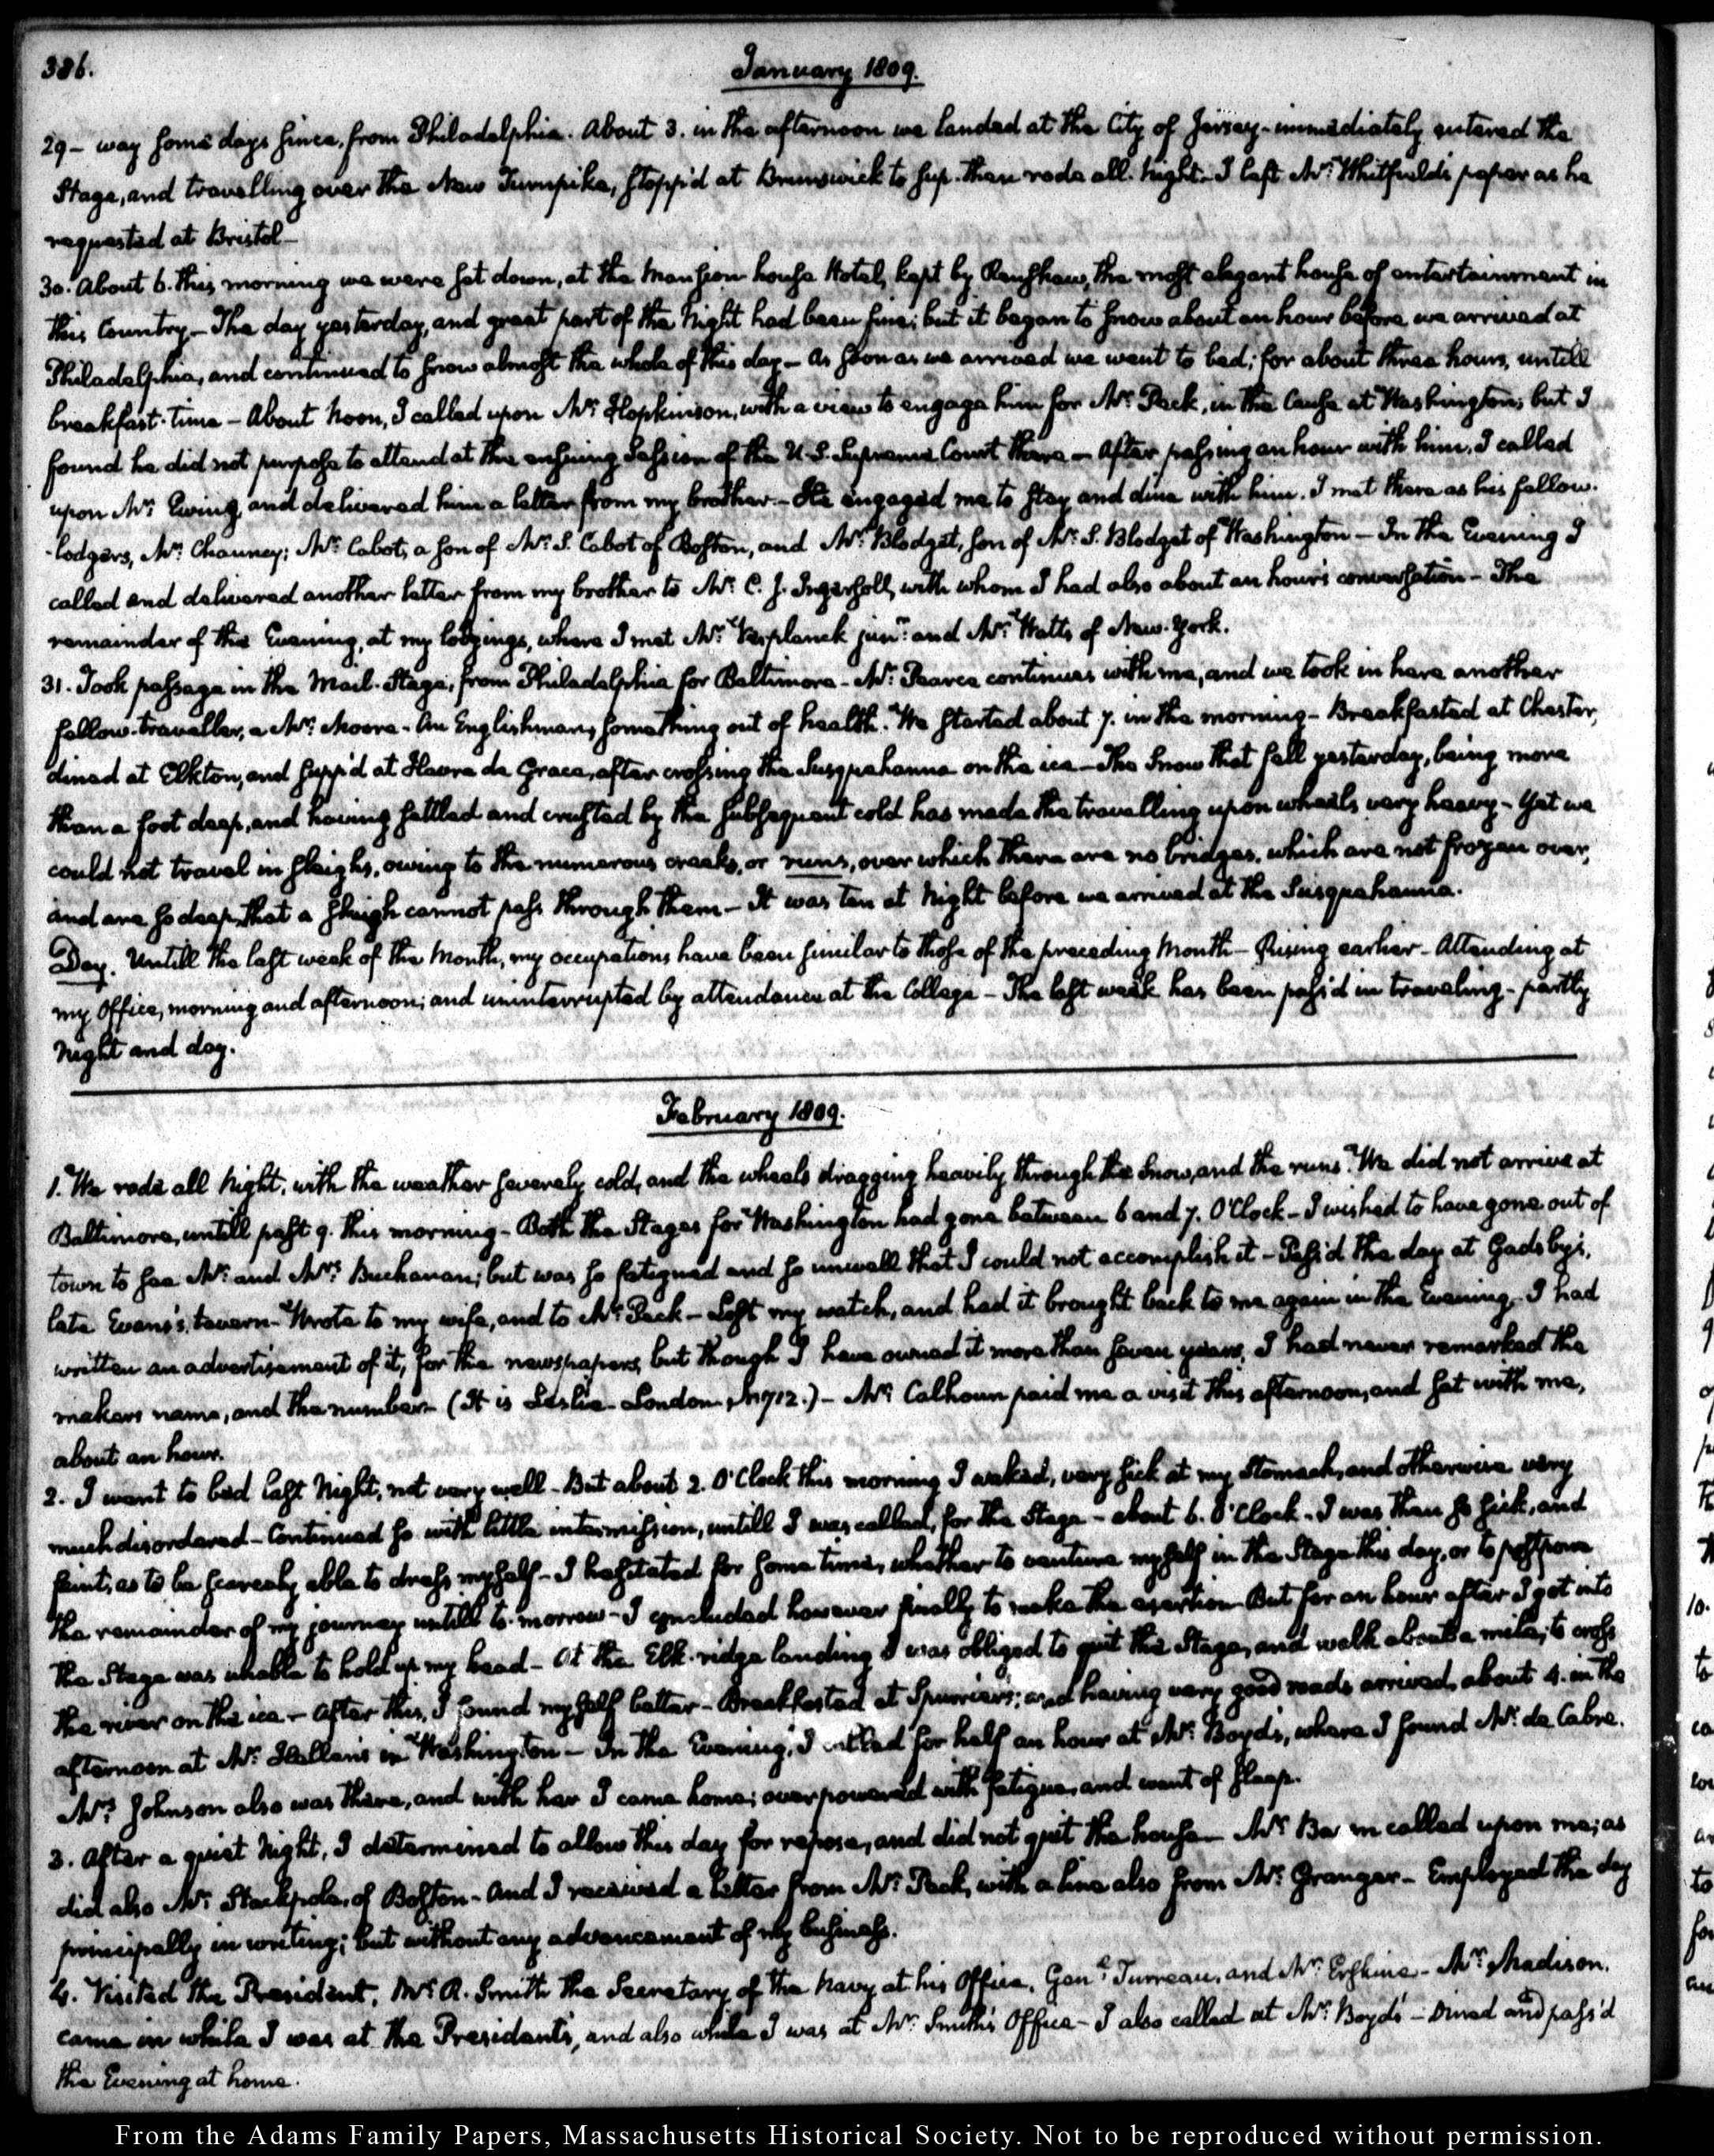 386.
January 1809.
29 - way some days since, from Philadelphia. About 3. in the afternoon we landed at the City of Jersey - immediately entered the
Stage, and travelling over the New Turnpike, stopp'd at Brunswick to sup. then rode all night - I left Mr. Whitfield's paper as he
requested at Bristol -
30. About 6. this morning we were set down, at the Mansion house Hotel, kept by Renshaw, the most elegant house of entertainment in
this Country - The day yesterday, and great part of the Night had been fine; but it began to snow about an hour before we arrived at
Philadelphia, and continued to snow almost the whole of this day - As soon as we arrived we went to bed; for about three hours, untill
breakfast-time - About Noon, I called upon Mr. Hopkinson, with a view to engage him for Mr. Peck, in the Cause at Washington; but I
found he did not purpose to attend at the ensuing Session of the U.S. Supreme Court there - After passing an hour with him, I called
upon Mr. Ewing, and delivered him a letter from my brother - He engaged me to stay and dine with him. I met there as his fellow-
-lodgers, Mr. Chauncy; Mr. Cabot, a son of Mr. S. Cabot of Boston, and Mr. Blodget, son of Mr. S. Blodget of Washington - In the Evening I
called and delivered another letter from my brother to Mr. C. J. Ingersoll, with whom I had also about an hour's conversation - The
remainder of the Evening, at my lodgings, where I met Mr. Verplanck junr. and Mr. Watts of New-York.
31. Took passage in the Mail-Stage, from Philadelphia for Baltimore - Mr. Pearce continues with me, and we took in here another
fellow-traveller, a Mr. Moore - An Englishman, something out of health. We started about 7. in the morning - Breakfasted at Chester,
dined at Elkton, and supp'd at Havre de Grace, after crossing the Susquehanna on the ice - The Snow that fell yesterday, being more
than a foot deep, and having settled and crusted by the subsequent cold has made the travelling upon wheels very heavy - Yet we
could not travel in sleighs, owing to the numerous creeks, or runs, over which there are no bridges, which are not frozen over,
and are so deep, that a sleigh cannot pass through them - It was ten at Night before we arrived at the Susquehanna.
Day. Untill the last week of the Month, my occupations have been similar to those of the preceding Month - Rising earlier - Attending at
my Office, morning and afternoon; and uninterrupted by attendance at the College - The last week has been pass'd in traveling - partly
Night and day.
February 1809.
1. We rode all Night, with the weather severely cold, and the wheels dragging heavily through the Snow, and the runs. We did not arrive at
Baltimore, untill past 9. this morning - Both the Stages for Washington had gone between 6 and 7. O'Clock - I wished to have gone out of
town to see Mr. and Mrs. Buchanan; but was so fatigued and so unwell that I could not accomplish it - Pass'd the day at Gadsby's,
late Evans's, tavern - Wrote to my wife, and to Mr. Peck - Lost my watch, and had it brought back to me again in the Evening. I had
written an advertisement of it, for the newspapers, but though I have owned it more than seven years, I had never remarked the
makers name, and the number - (It is Leslie - London, N 712.) - Mr. Calhoun paid me a visit this afternoon, and sat with me,
about an hour.
2. I went to bed last Night, not very well - But about 2. O'Clock this morning I waked, very sick at my Stomach, and otherwise very
much disordered - Continued so with little intermission, untill I was called, for the Stage - about 6. O'Clock - I was then so sick, and
faint, as to be scarcely able to dress myself - I hesitated for some time, whether to venture myself in the Stage this day, or to postpone
the remainder of my journey untill to-morrow - I concluded however finally to make the exertion - But for an hour after I got into
the Stage was unable to hold up my head - At the Elk-ridge landing I was obliged to quit the Stage, and walk about a mile, to cross
the river on the ice - After this, I found myself better - Breakfasted at Spurrier's; and having very good roads arrived about 4. in the
afternoon at Mr. Hellen's in Washington - In the Evening, I called for half an hour at Mr. Boyd's, where I found Mr. de Cabre.
Mrs. Johnson also was there, and with her I came home; overpowered with fatigue, and want of sleep.
3. After a quiet Night, I determined to allow this day for repose, and did not quit the house - Mr. called upon me; as
did also Mr. Stackpole, of Boston - And I received a letter from Mr. Peck, with a line also from Mr. Granger - Employed the day
principally in writing; but without any advancement of my business.
4. Visited the President, Mr. R. Smith the Secretary of the Navy at his Office, Genl. Turreau, and Mr. Erskine - Mr. Madison,
came in while I was at the President's, and also while I was at Mr. Smith's Office - I also called at Mr. Boyd's - Dined and pass'd
the Evening at home.
From the Adams Family Papers, Massachusetts Historical Society. Not to be reproduced without permission.